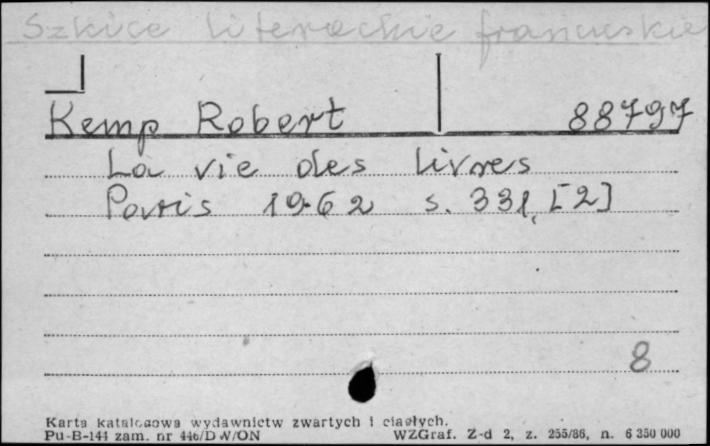 Szkice literackie francuskie
Kemp Robert 88797
La vie des livres
Paris 1962 s. 331, [2]
8
Karta katalogowa wydawnictw zwartych i ciągłych.
Pu-B-144 zam. nr 446/DW/ON WZGraf. Z-d 2, z. 255/86, n. 6 350 000